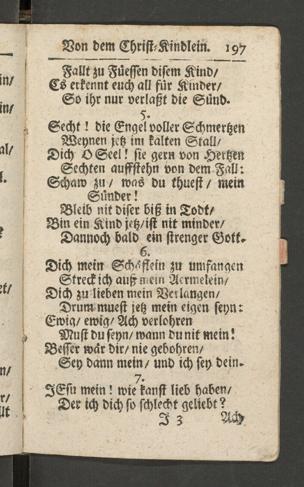 Von dem Christ-Kindlein. 197
Fallt zu Füessen disem Kind/
Es erkennt euch all für Kinder/
So ihr nur verlaßt die Sünd.
5.
Secht! die Engel voller Schmertzen
Weynen jetz im kalten Stall/
Dich O Seel! sie gern von Hertzen
Sechten auffstehn von dem Fall:
Schaw zu/ was du thuest/ mein
Sünder!
Bleib nit diser biß in Todt/
Bin ein Kind jetz/ ist nit minder/
Dannoch bald ein strenger Gott.
6.
Dich mein Schäflein zu umfangen
Streck ich auß mein Aermelein/
Dich zu lieben mein Verlangen/
Drum muest jetz mein eigen seyn:
Ewig/ ewig/ Ach verlohren
Must du seyn/ wann du nit mein!
Besser wär dir/ nie gebohren/
Sey dann mein/ und ich sey dein.
7.
JEsu mein! wie kanst lieb haben/
Der ich dich so schlecht geliebt?
J 3 Ach